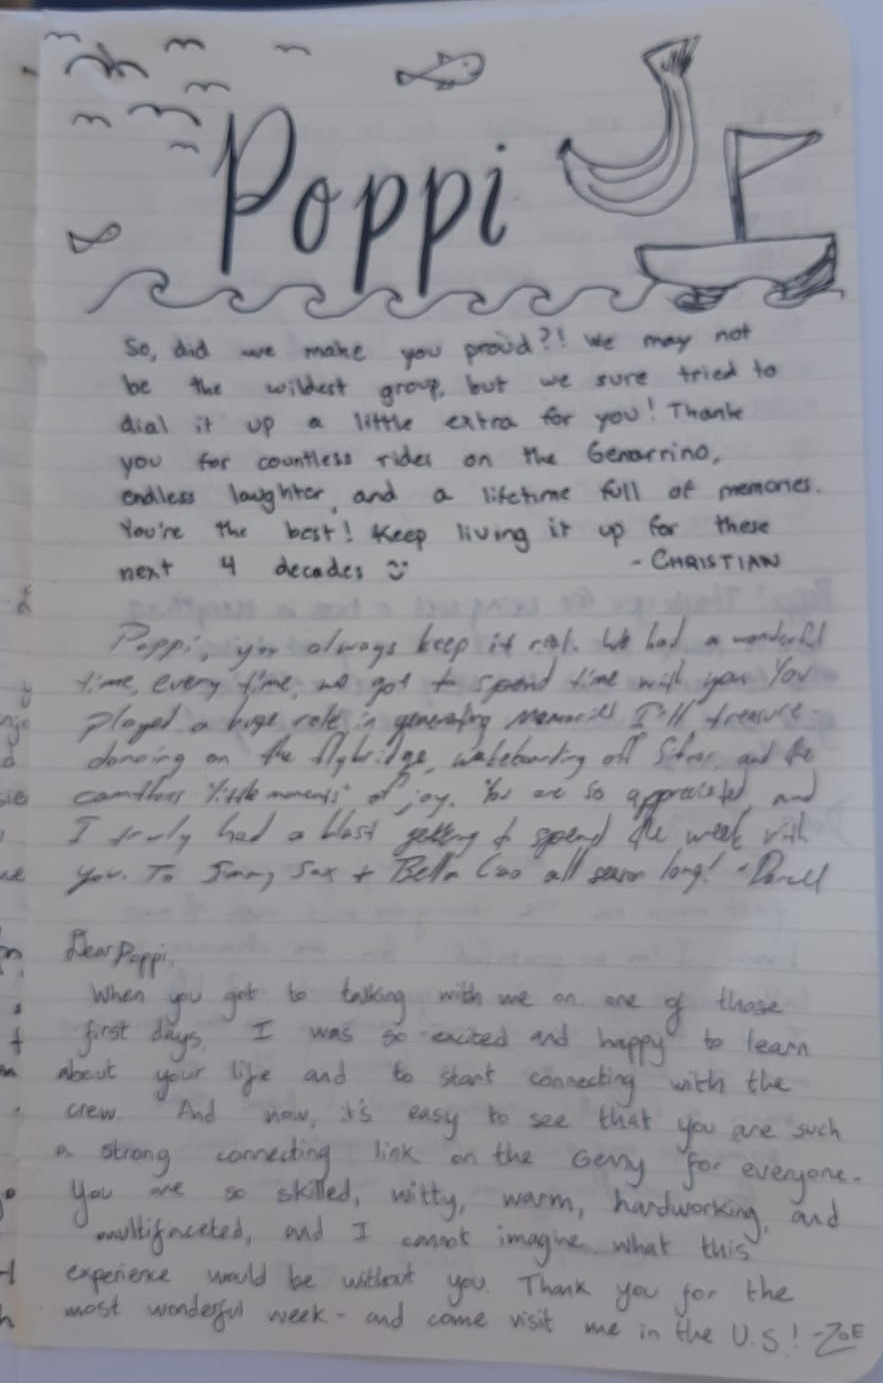 Poppi
So, did we make you proud?! We may not
be the wildest group, but we sure tried to
dial it up a little extra for you! Thank
you for countless rides on the Genarrino,
endless laughter, and a lifetime full of memories.
You're the best! Keep living it up for these
next 4 decades
- CHRISTIAN
Poppi, you always keep it real. We had a wonderful
time, every time, we got to spend time with you. You
played a huge role in generating memories I'll treasure -
dancing on the flybridge, wakeboarding off and the
countless "little moments" of joy. You are so appreciated, and
I truly had a blast getting to spend the week with
you. To Jimmy Sax + Bella Ciao all season long! -
Dear Poppi,
When you got to talking with me on one of those
first days, I was so excited and happy to learn
about your life and to start connecting with the
crew. And now, it's easy to see that you are such
a strong connecting link on the Genny for everyone.
You are so skilled, witty, warm, hardworking, and
multifaceted, and I cannot imagine what this
experience would be without you. Thank you for the
most wonderful week - and come visit me in the U.S.! -ZOE